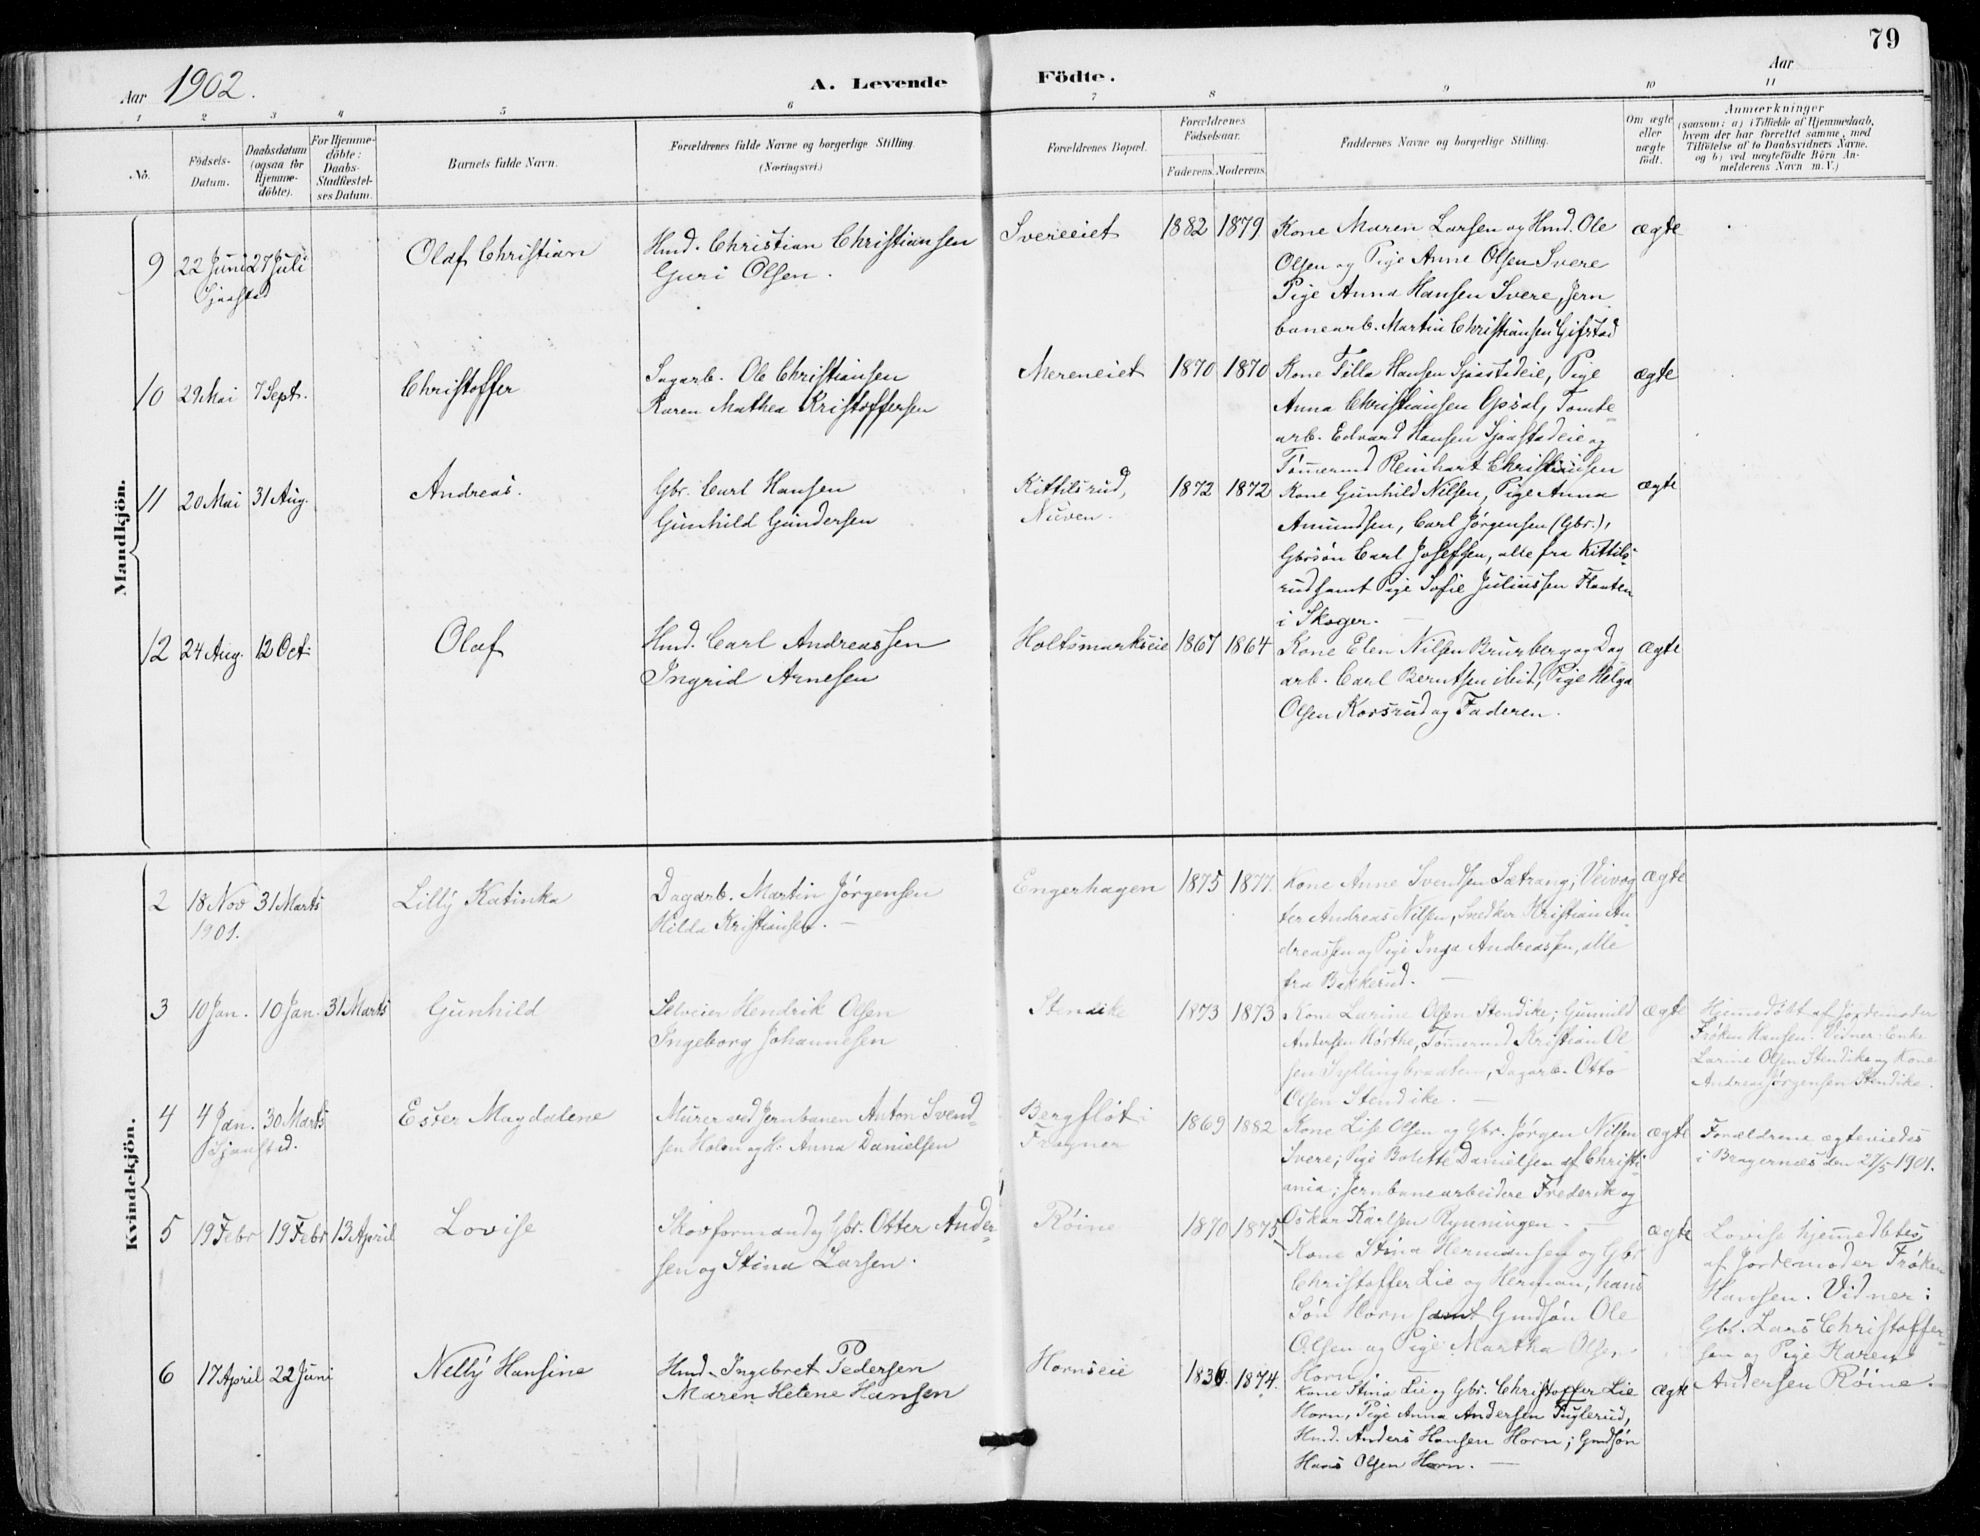 79
Aar 1902.
A. Levende Födte.
Aar
1 2 3 4 5 6 7 8 9 10 11
No.
Födsels-
Datum.
Daabsdatum
(ogsaa for
Hjemme-
döbte).
For Hjemme-
döbte:
Daabs-
Stadfæstel-
ses Datum.
Barnets fulde Navn.
Forældrenes fulde Navne og borgerlige Stilling.
(Næringsvei.)
Forældrenes Bopæl.
Forældrenes
Födselsaar.
Faderens. Moderens.
Faddernes Navne og borgerlige Stilling.
Om ægte
eller
uægte
födt.
Anmærkninger
(saasom: a) i Tilfælde af Hjemmedaab,
hvem der har forrettet samme, med
Tilföielse af to Daabsvidners Navne.
og b) ved uægtefödte Börn An-
melderens Navn m.V.)
Mandkjön.
9
22 Juni
Sjaastad
27 Juli
Olaf Christian
Hmd. Christian Christiansen
Guri Olsen.
Svereeiet
1882
1879
Kone Maren Larsen og Hmd. Ole
Olsen og Pige Anne Olsen Svere
Pige Anna Hansen Svere, Jern
banearb. Martin Christiansen Gifstad
ægte
10
29 Mai
7 Sept.
Christoffer
Sagarb. Ole Christiansen
Karen Mathea Kristoffersen
Mereneiet
1870
1870
Kone Tilla Hansen Sjaastadeie, Pige
Anna Christiansen Opsal, Tomte-
arb. Edvard Hansen Sjaastadeie og
Tømmermd Reinhart Christiansen
ægte
11
20 Mai
31 Aug.
Andreas.
Gbr. Carl Hansen
Gunhild Gundersen
Kittilsrud,
Nuven.
1872
1872
Kone Gunhild Nilsen, Pige Anna
Amundsen, Carl Jørgensen (Gbr.),
Gbrsøn Carl Josefsen, alle fra Kittils-
rud samt Pige Sofie Juliussen Flaaten
i Skoger.
ægte
12
24 Aug.
12 Oct.
Olaf
Hmd. Carl Andreassen
Ingrid Arnesen
Holtsmarkseie
1867
1864
Kone Elen Nilsen Brurberg og Dag
arb. Carl Berntsen ibid, Pige Helga
Olsen Korsrud og Faderen.
ægte
Kvindekjön.
2
18 Nov
1901.
31 Marts
Lilly Katinka
Dagarb. Martin Jørgensen
Hilda Kristiansen.
Engerhagen
1875
1877.
Kone Anne Svendsen Sætrang, Veivog
ter Andreas Nilsen, Snedker Kristian An
dreassen og Pige Inga Andreassen, alle
fra Bakkerud.
ægte
3
10 Jan.
10 Jan.
31 Marts
Gunhild
Selveier Hendrik Olsen
Ingeborg Johannesen
Stendike
1873
1873
Kone Larine Olsen Stendike; Gunnild
Andersen Hørthe, Tømmermd Kristian Ol-
sen Syllingbraaten, Dagarb. Otto
Olsen Stendike.
ægte
Hjemmedøbt af Jordemoder
Frøken Hansen. Vidner: Enke
Larine Olsen Stendike og Kone
Andrea Jørgensen Stendike.
4
4 Jan.
Sjaastad.
30 Marts
Ester Magdalene
Murer ved Jernbanen Anton Svend-
sen Holen og H: Anna Danielsen
Bergfløt i
Frogner
1869
1882
Kone Lise Olsen og Gbr. Jørgen Nilsen
Svere; Pige Bolette Danielsen af Christi-
ania; Jernbanearbeidere Frederik og
Oskar Karlsen Rynningen.
ægte
Forældrene ægteviedes
i Bragernæs den 27/5 1901.
5
19 Febr
19 Febr
13 April
Lovise
Skovformand og Gbr. Otter Ander-
sen og Stina Larsen.
Røine
1870
1875
Kone Stina Hermansen og Gbr
Christoffer Lie og Herman, hans
Søn Horn samt Gmdsøn Ole
Olsen og Pige Martha Olsen
Horn.
ægte
Lovise hjemmedøbtes
af Jordemoder Frøken
Hansen. Vidner:
Gbr. Lars Christoffer-
sen og Pige Karen
Andersen Røine.
6
17 April
22 Juni
Nelly Hansine
Hmd. Ingebret Pedersen
Maren Helene Hansen
Hornseie
1874.
Kone Stina Lie og Gbr. Christoffer Lie
Horn, Pige Anna Andersen Fuglerud,
Hmd. Anders Hansen Horn; Gmdsøn
Hans Olsen Horn.
ægte